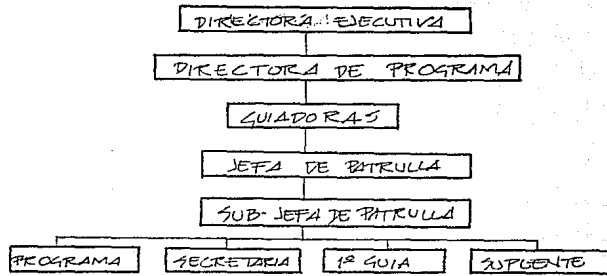 DIRECTORA EJECUTIVA
DIRECTORA DE PROGRAMA
GUIADORAS
JEFA DE PATRULLA
SUB-JEFA DE PATRULLA
PROGRAMA SECRETARIA 1ª GUIA SUPLENTE